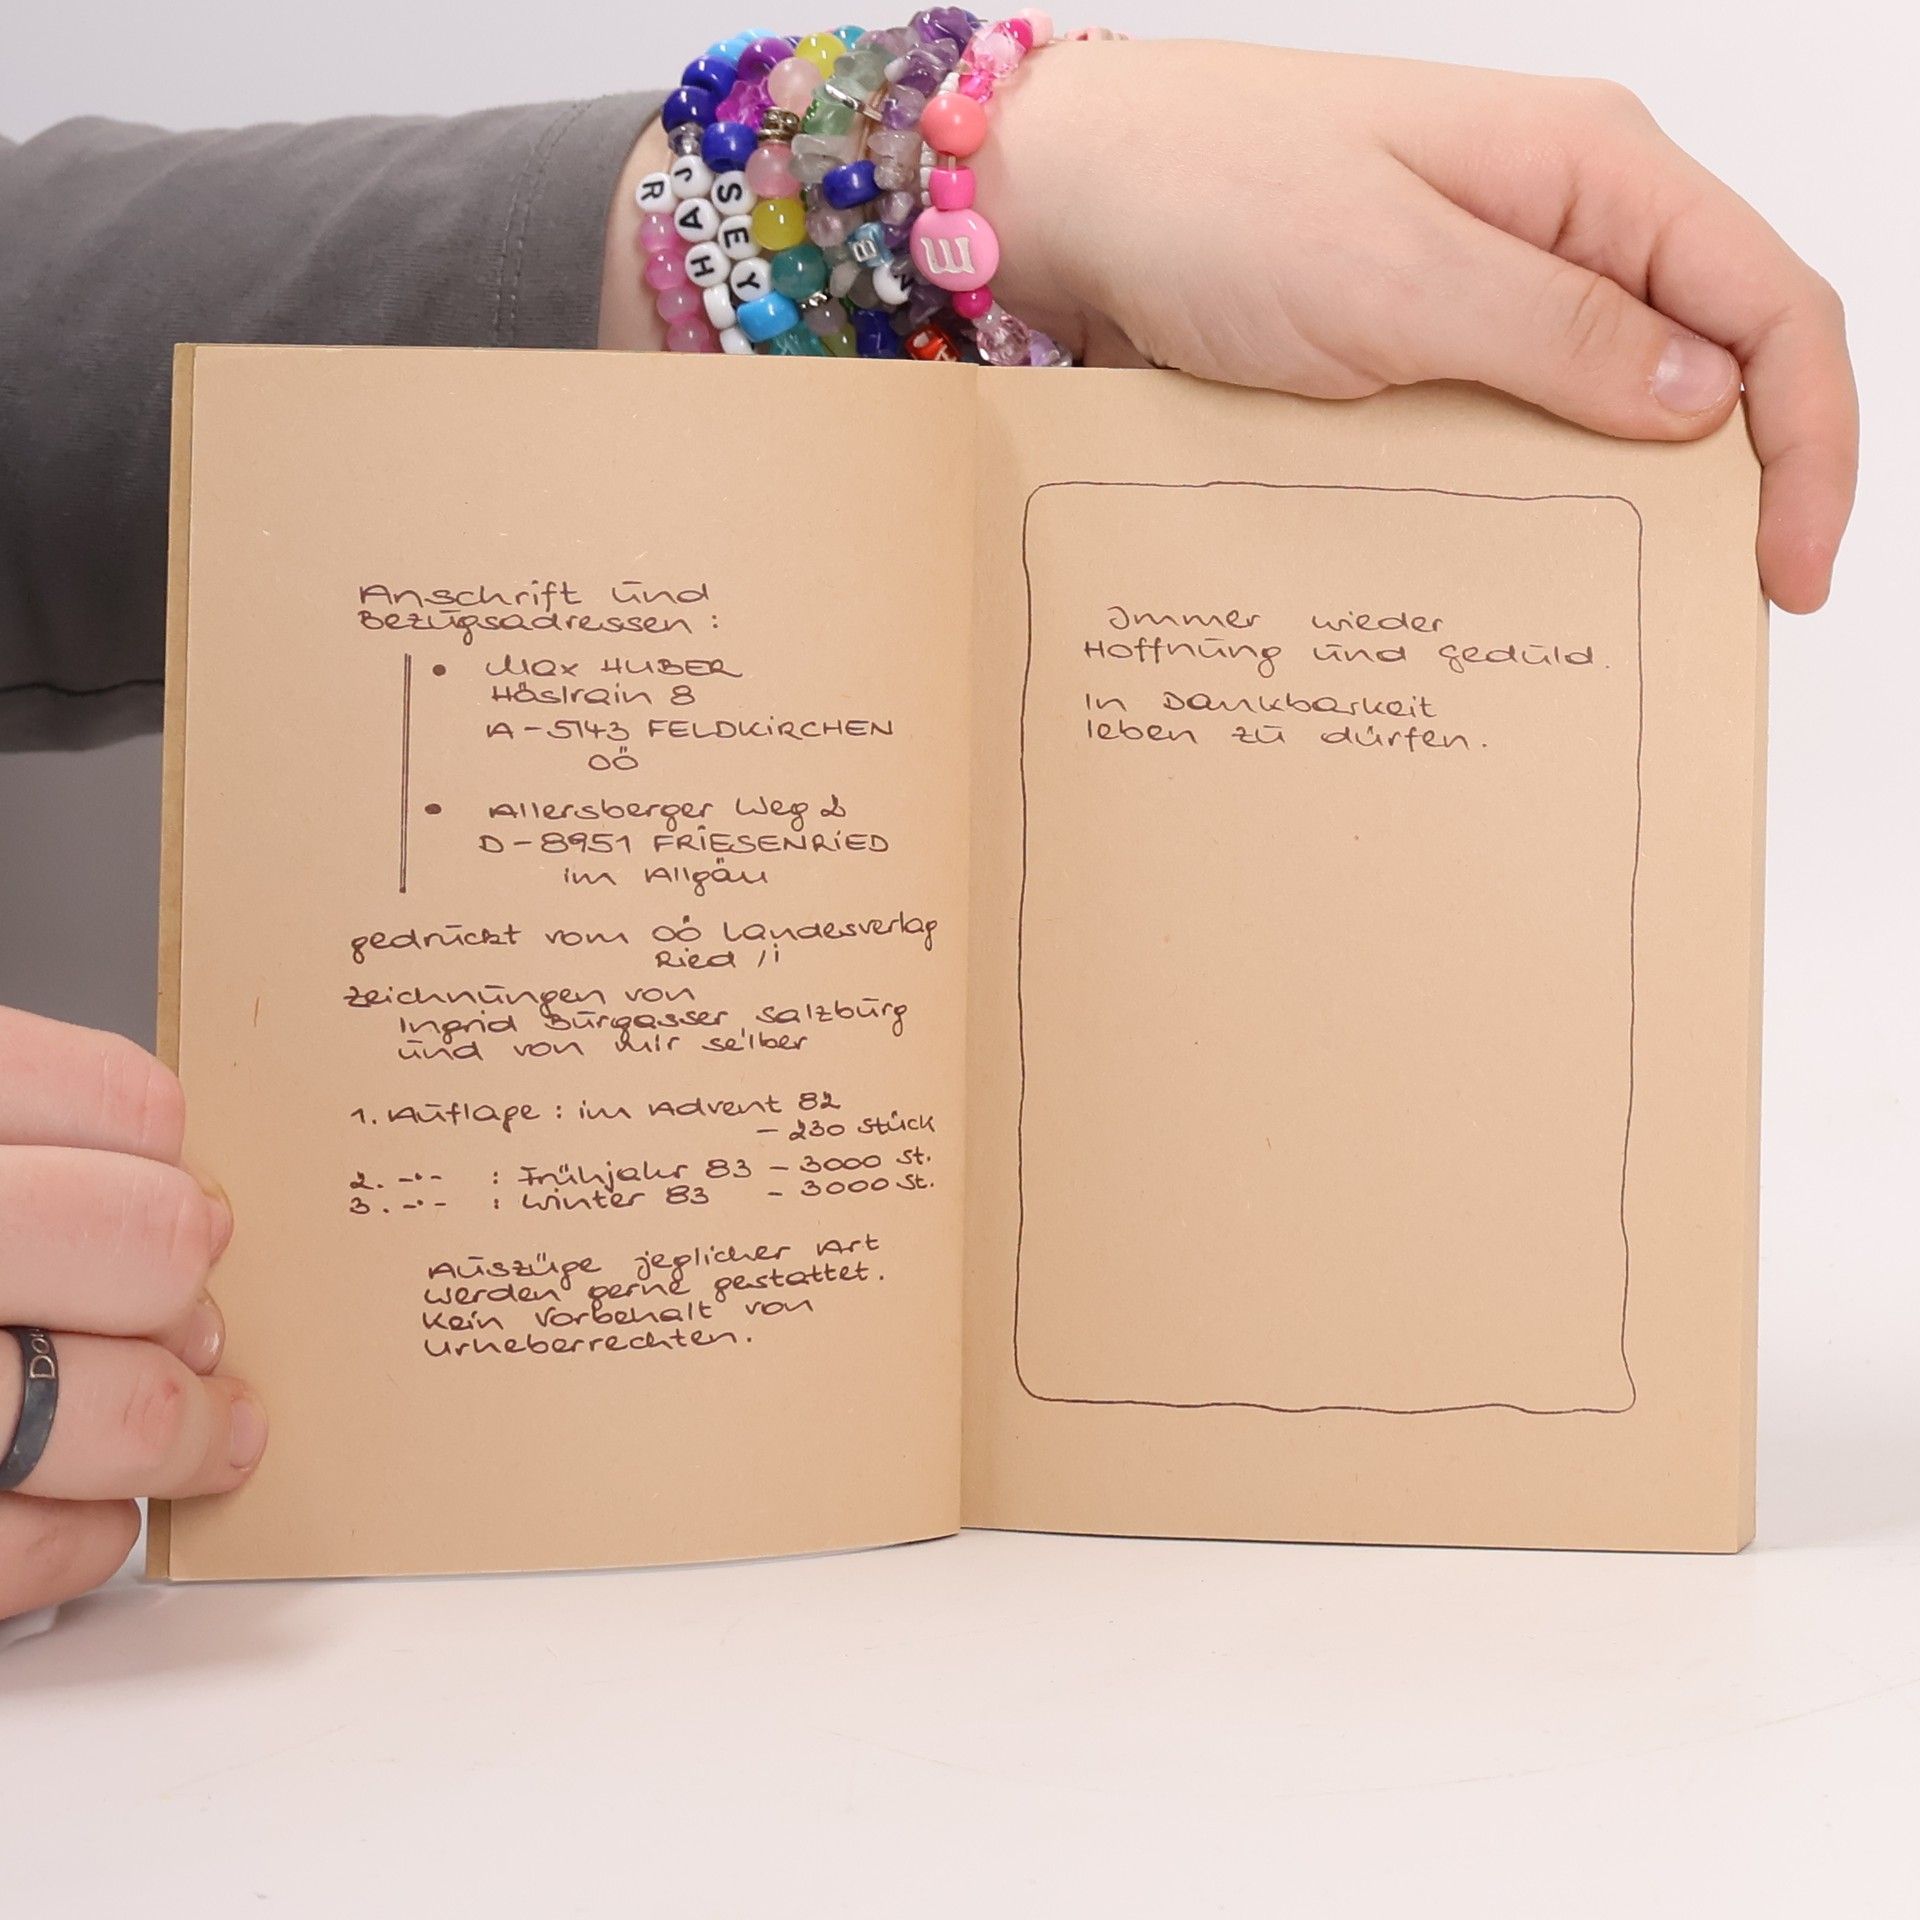 R
JAH
SEY
B
N
m
Anschrift und
Bezugsadressen :
• Max HUBER
Höslrain 8
A - 5143 FELDKIRCHEN
OÖ
• Allersberger Weg 2
D - 8951 FRIESENRIED
im Allgäu
gedruckt vom OÖ Landesverlag
Ried /i
Zeichnungen von
Ingrid Burgasser, Salzburg
und von mir selber
1. Auflage : im Advent 82
- 230 Stück
2. -"- : Frühjahr 83 - 3000 St.
3. -"- : Winter 83 - 3000 St.
Auszüge jeglicher Art
werden gerne gestattet.
Kein Vorbehalt von
Urheberrechten.
Immer wieder
Hoffnung und Geduld.
In Dankbarkeit
leben zu dürfen.
Do